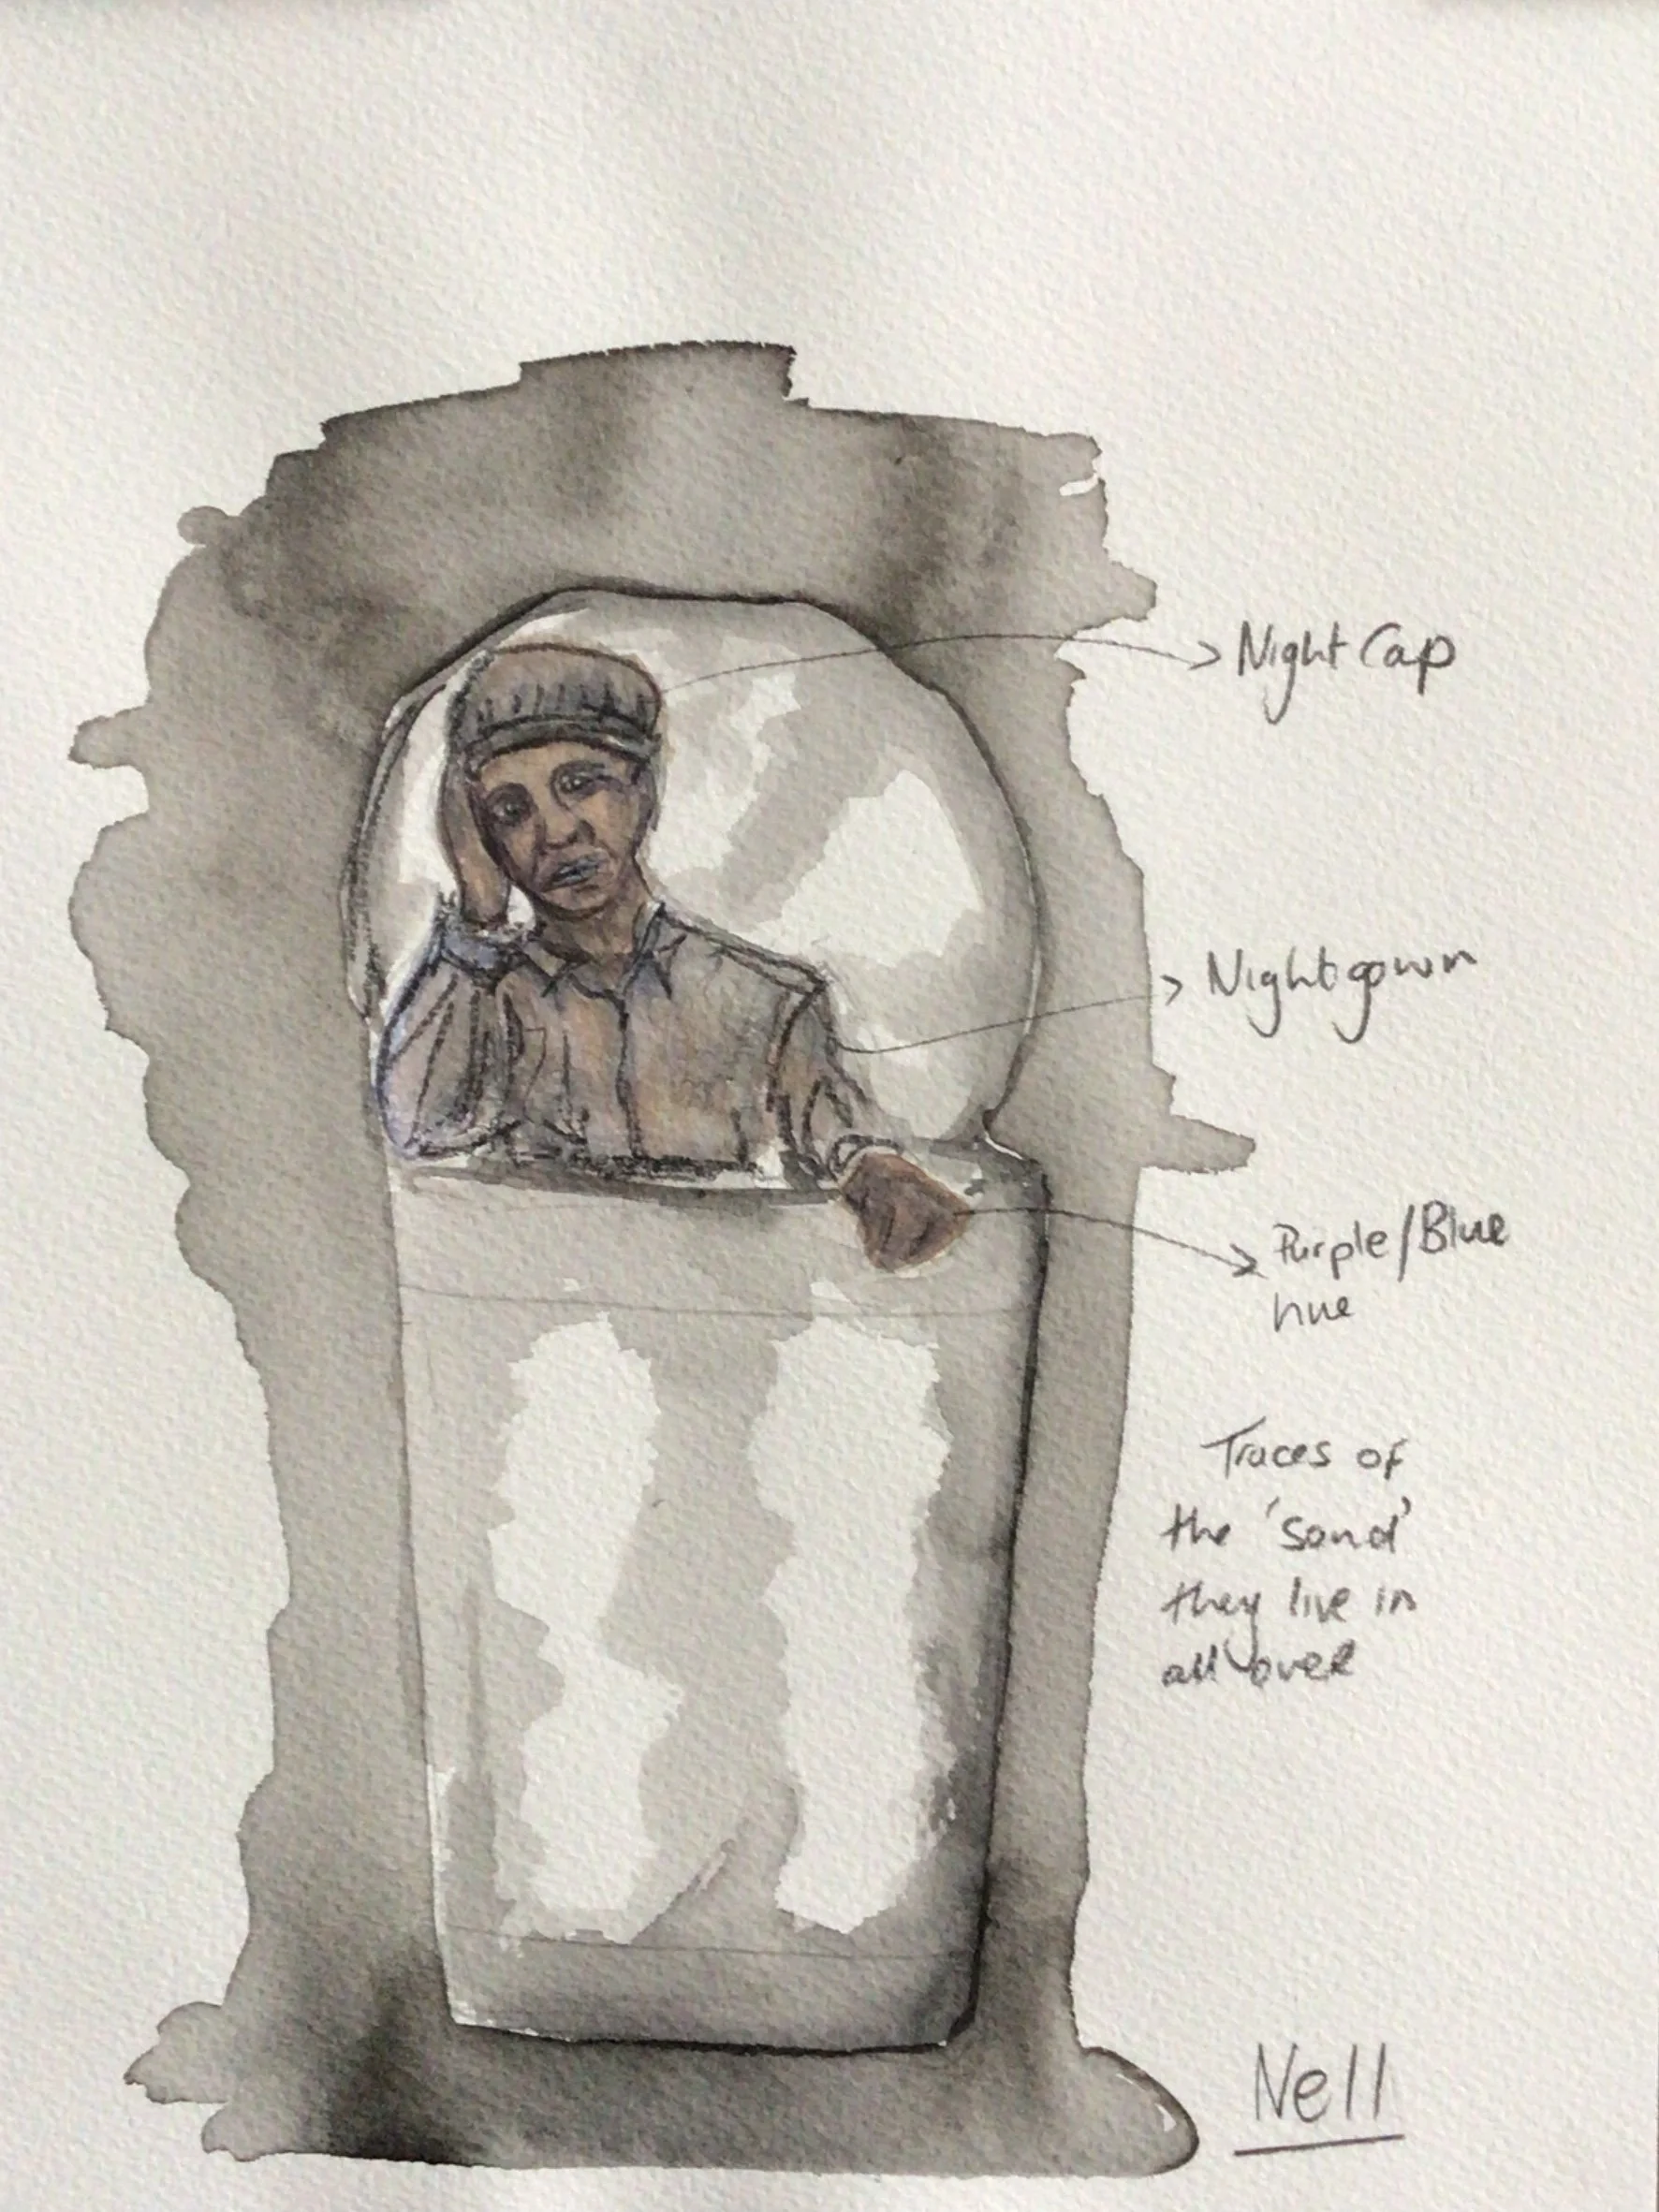 Night Cap
Nightgown
Purple/Blue
hue
Traces of
the 'sand'
they live in
all over
Nell